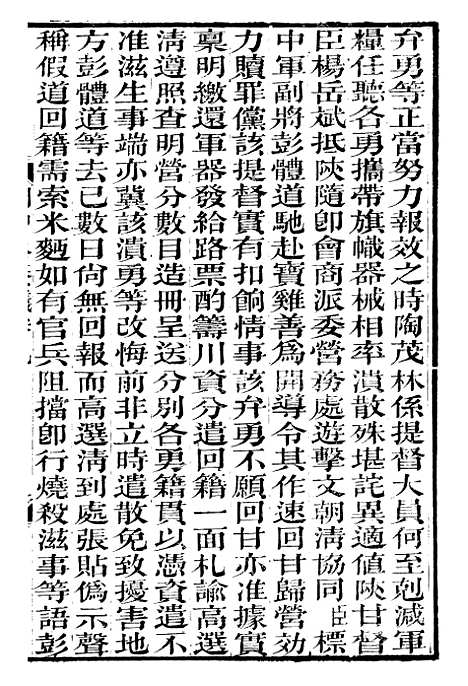 弁勇等正當努力報效之時陶茂林係提督大員何至剋減軍
糧任聽各勇攜帶旗幟器械相率潰散殊堪詫異適値陝甘督
臣楊岳斌抵陝隨卽會商派委營務處遊擊文朝淸協同臣標
中軍副將彭體道馳赴寶雞善爲開導令其作速回甘歸營效
力贖罪儻該提督實有扣餉情事該弁勇不願回甘亦准據實
稟明繳還軍器發給路票酌籌川資分遣回籍一面札諭高選
淸遵照查明營分數目造冊呈送分別各勇籍貫以憑資遣不
准滋生事端亦冀該潰勇等改悔前非立時遣散免致擾害地
方彭體道等去已數日尙無回報而高選淸到處張貼僞示聲
稱假道回籍需索米麵如有官兵阻擋卽行燒殺滋事等語彭